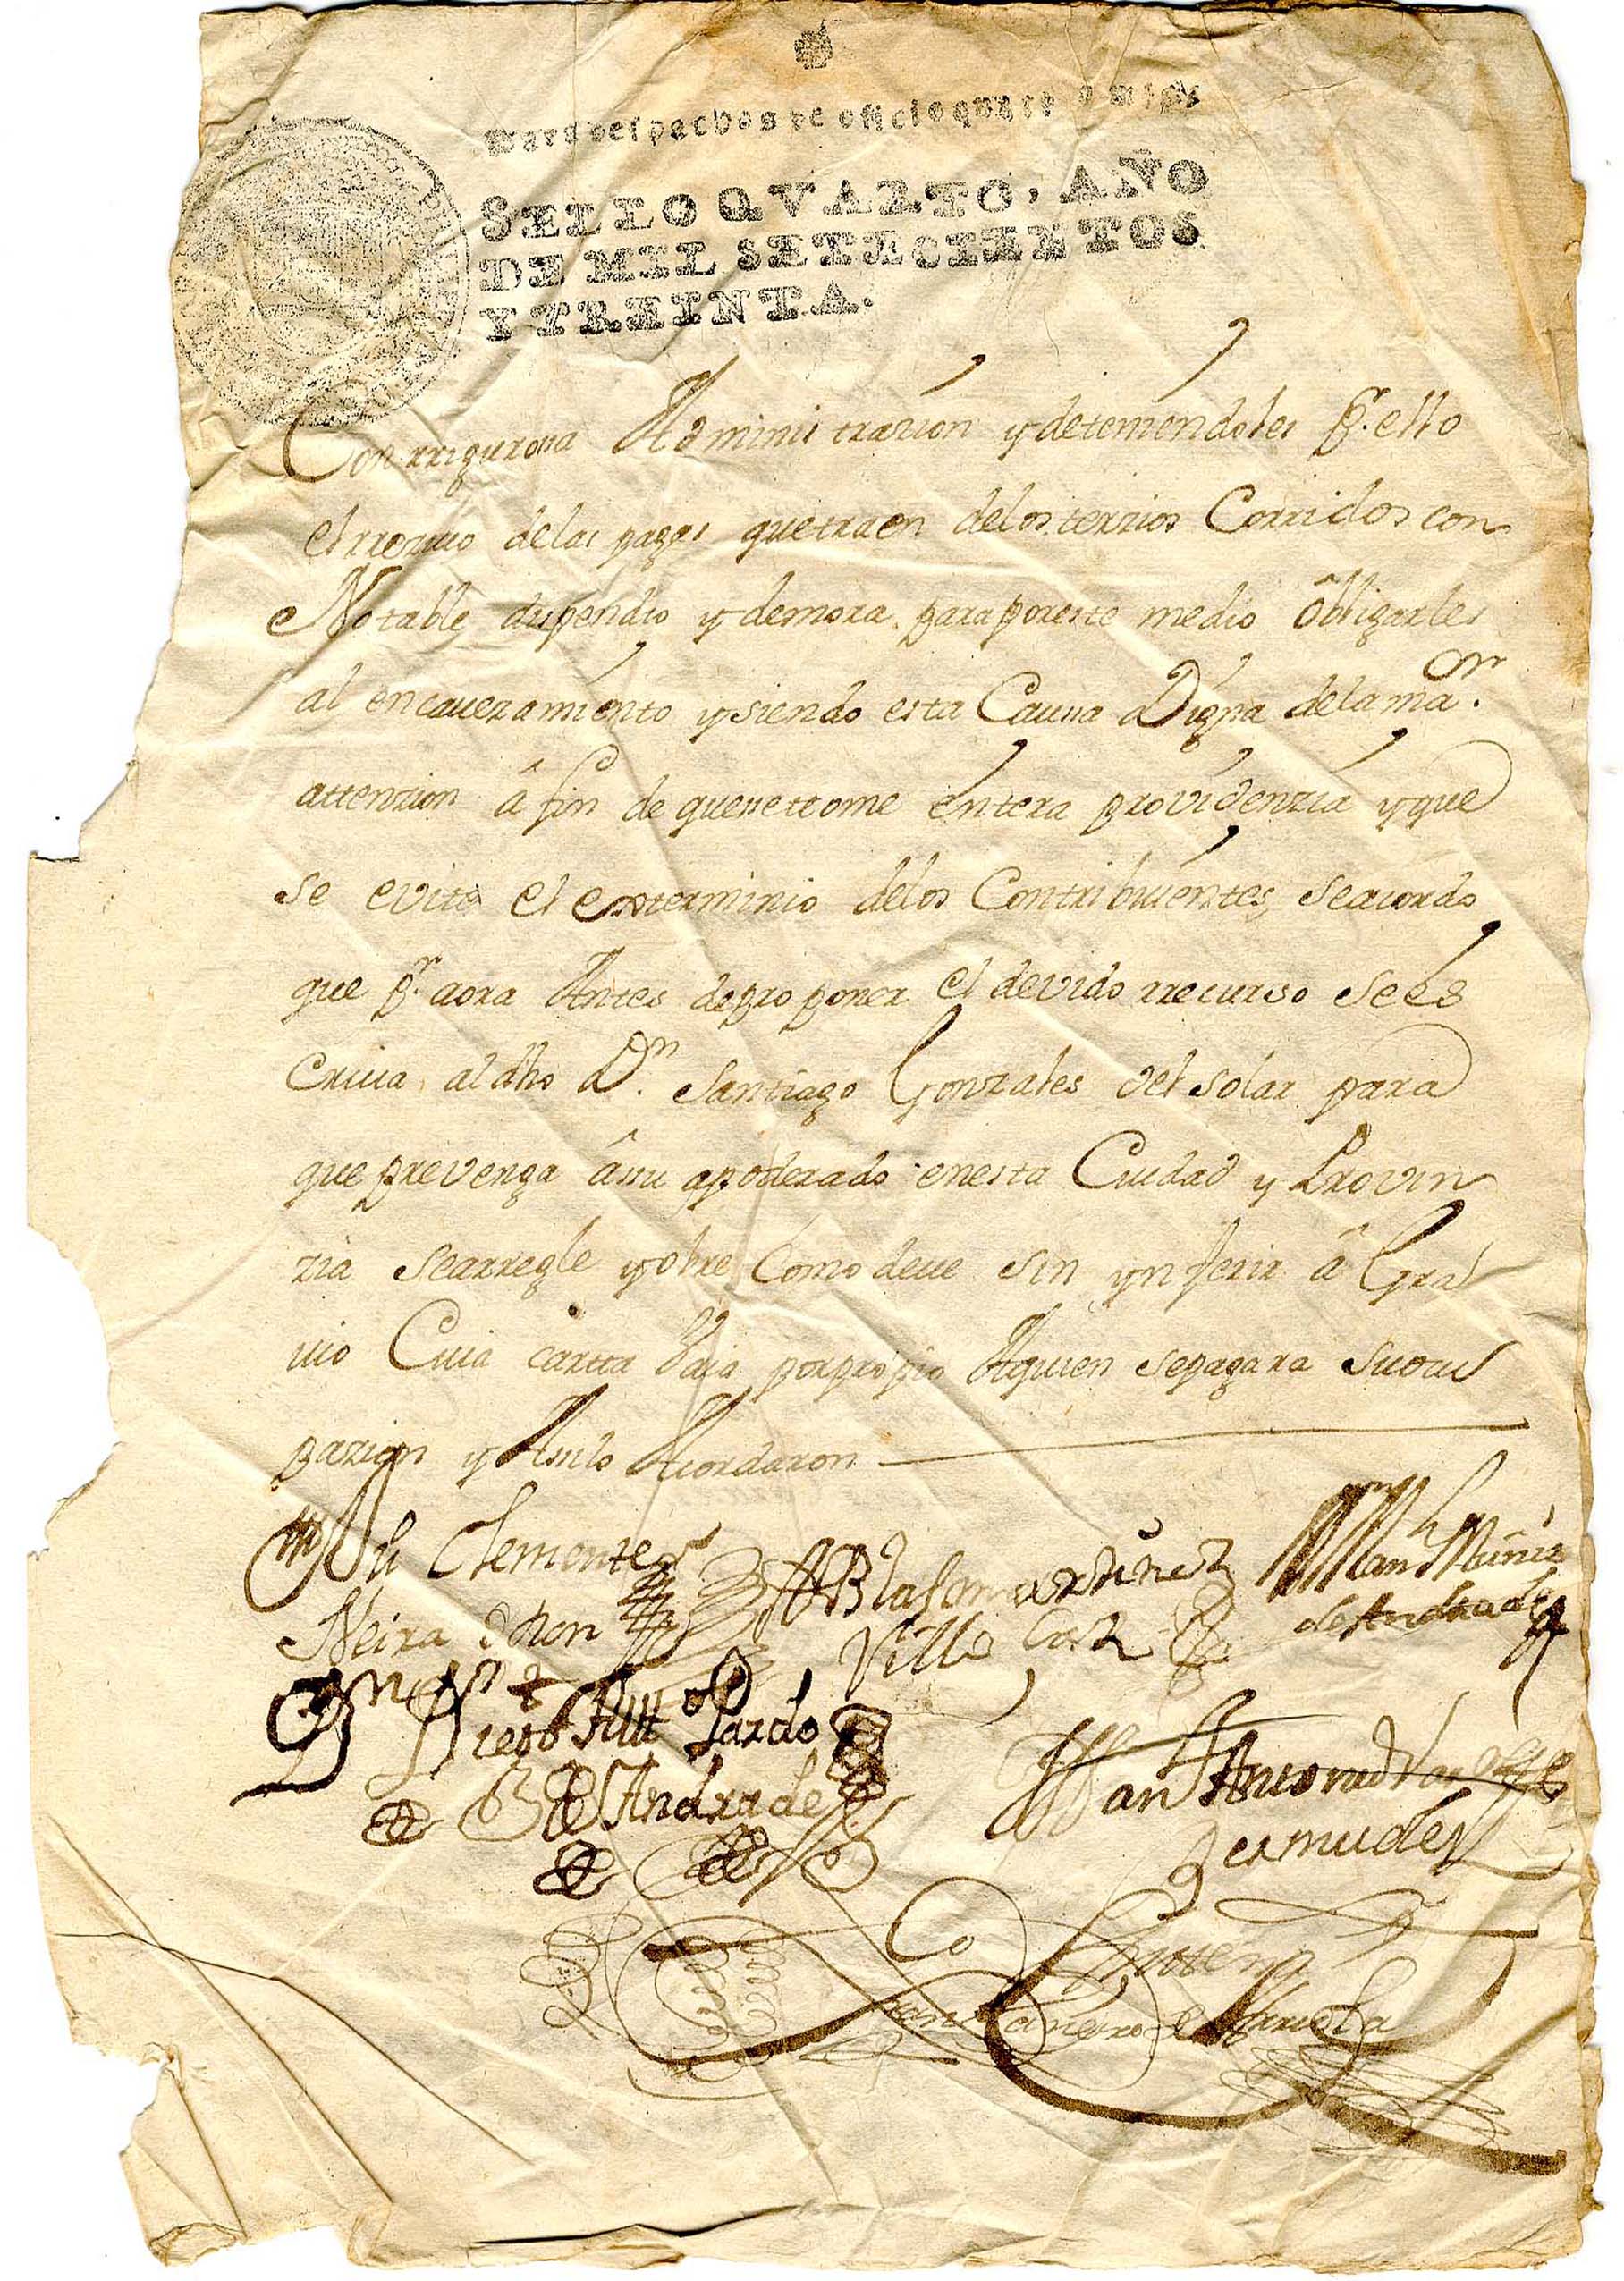 Para despachos de oficio quatro mrs
SELLO QVARTO, AÑO
DE MIL SETECIENTOS
Y TREINTA.
Con rrigurosa Administrazion y deteniendoles Pr. ello
el rreziuo de las pagas que traen de los terzios Corridos con
Notable dispendio y demora para por este medio óbligarles
al encauezamiento y siendo esta Caussa Digna de la maor.
attenzion â fin de que se ttome entera providenzia y que
se evite el exsterminio delos Contribuientes, se acordo
que Pr. aora Antes de proponer el devido rrecurso se es
Criua al dho Dn. Santiago Gonzales del solar para
que prevenga âsu apoderado en esta Ciudad y Provin
zia se arregle y obre Como deue sin ynferir â Gra
uio Cuia cartta Vaia por propio A quien se pagara su ocu
pazion y Assi lo Acordaron
Clemente
Neira
Blas martinez
Villa
Man Nuñez
de Andrade
Diego Pardo
de Andrade
Bermudes
Antte my